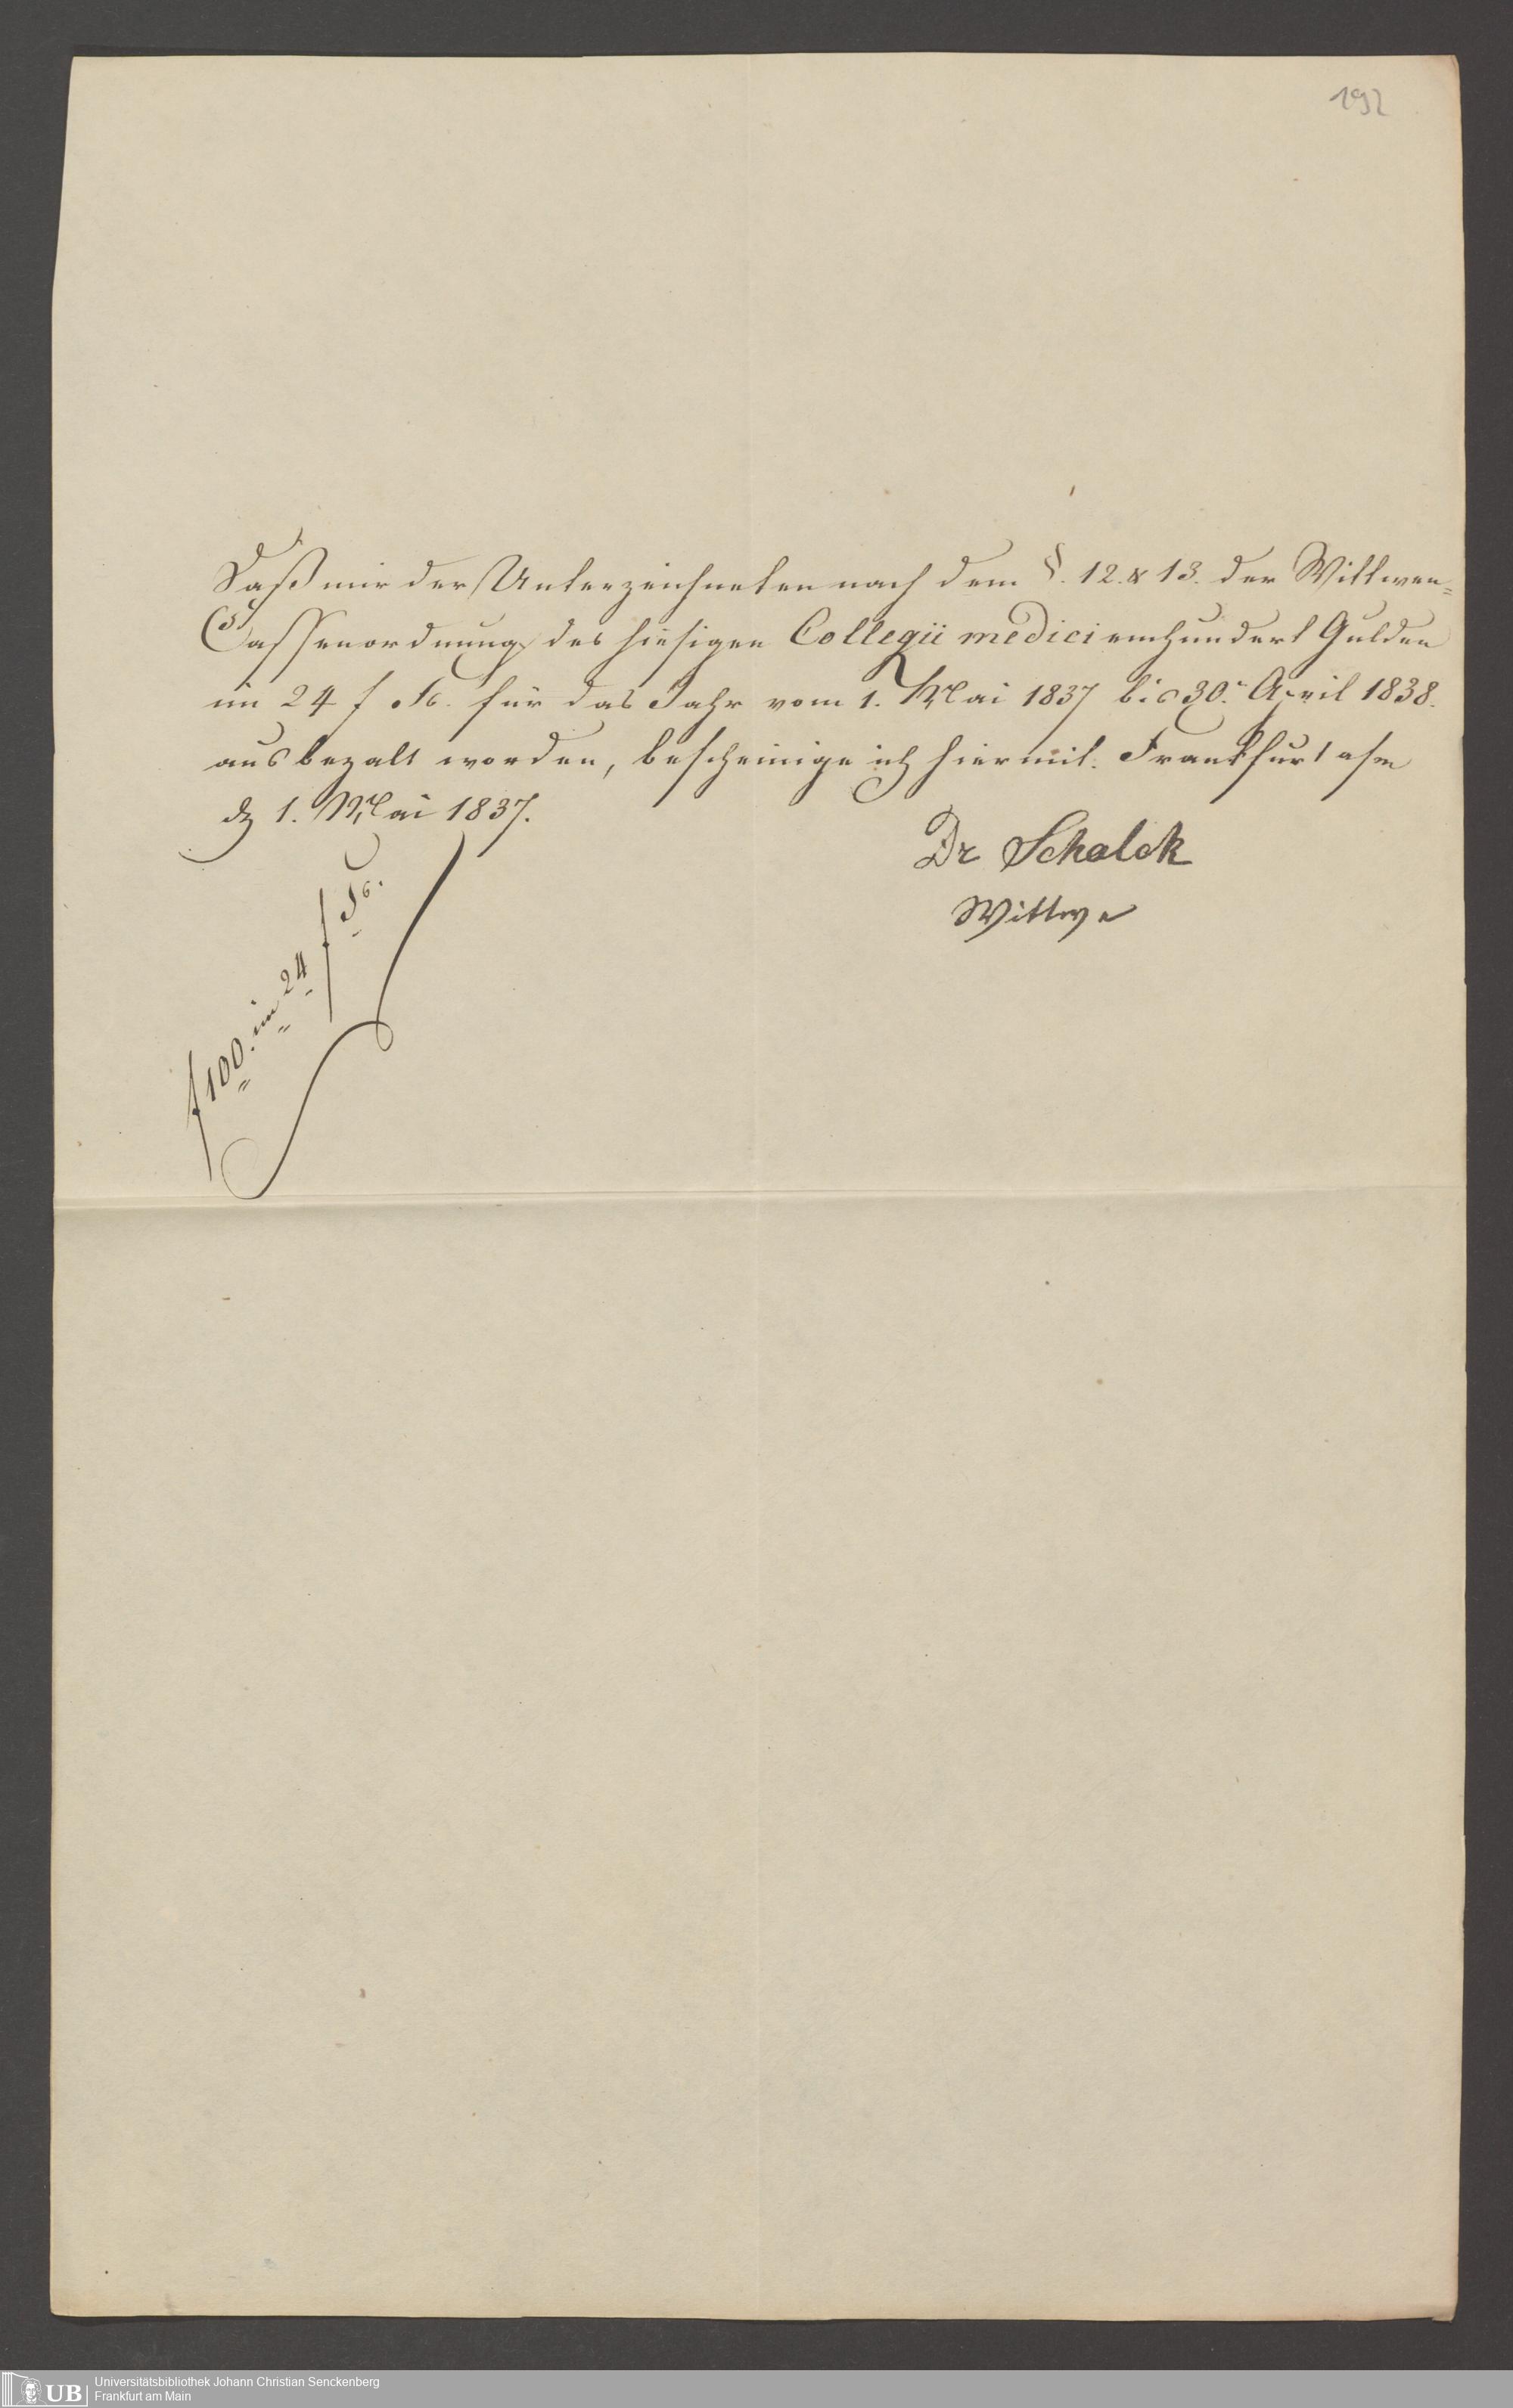 192
Daß mir der Unterzeichneten nach dem §. 12. & 13. der Wittwen=
Cassenordnung des hiesigen Collegii medici einhundert Gulden
im 24 f Fß. für das Jahr vom 1. Mai 1837 bis 30. April 1838.
ausbezalt worden, bescheinige ich hiermit. Frankfurt a/m
d 1. Mai 1837.
Dr Schalck
Wittwe
f 100. im 24 f Fß.
UB
Universitätsbibliothek Johann Christian Senckenberg
Frankfurt am Main